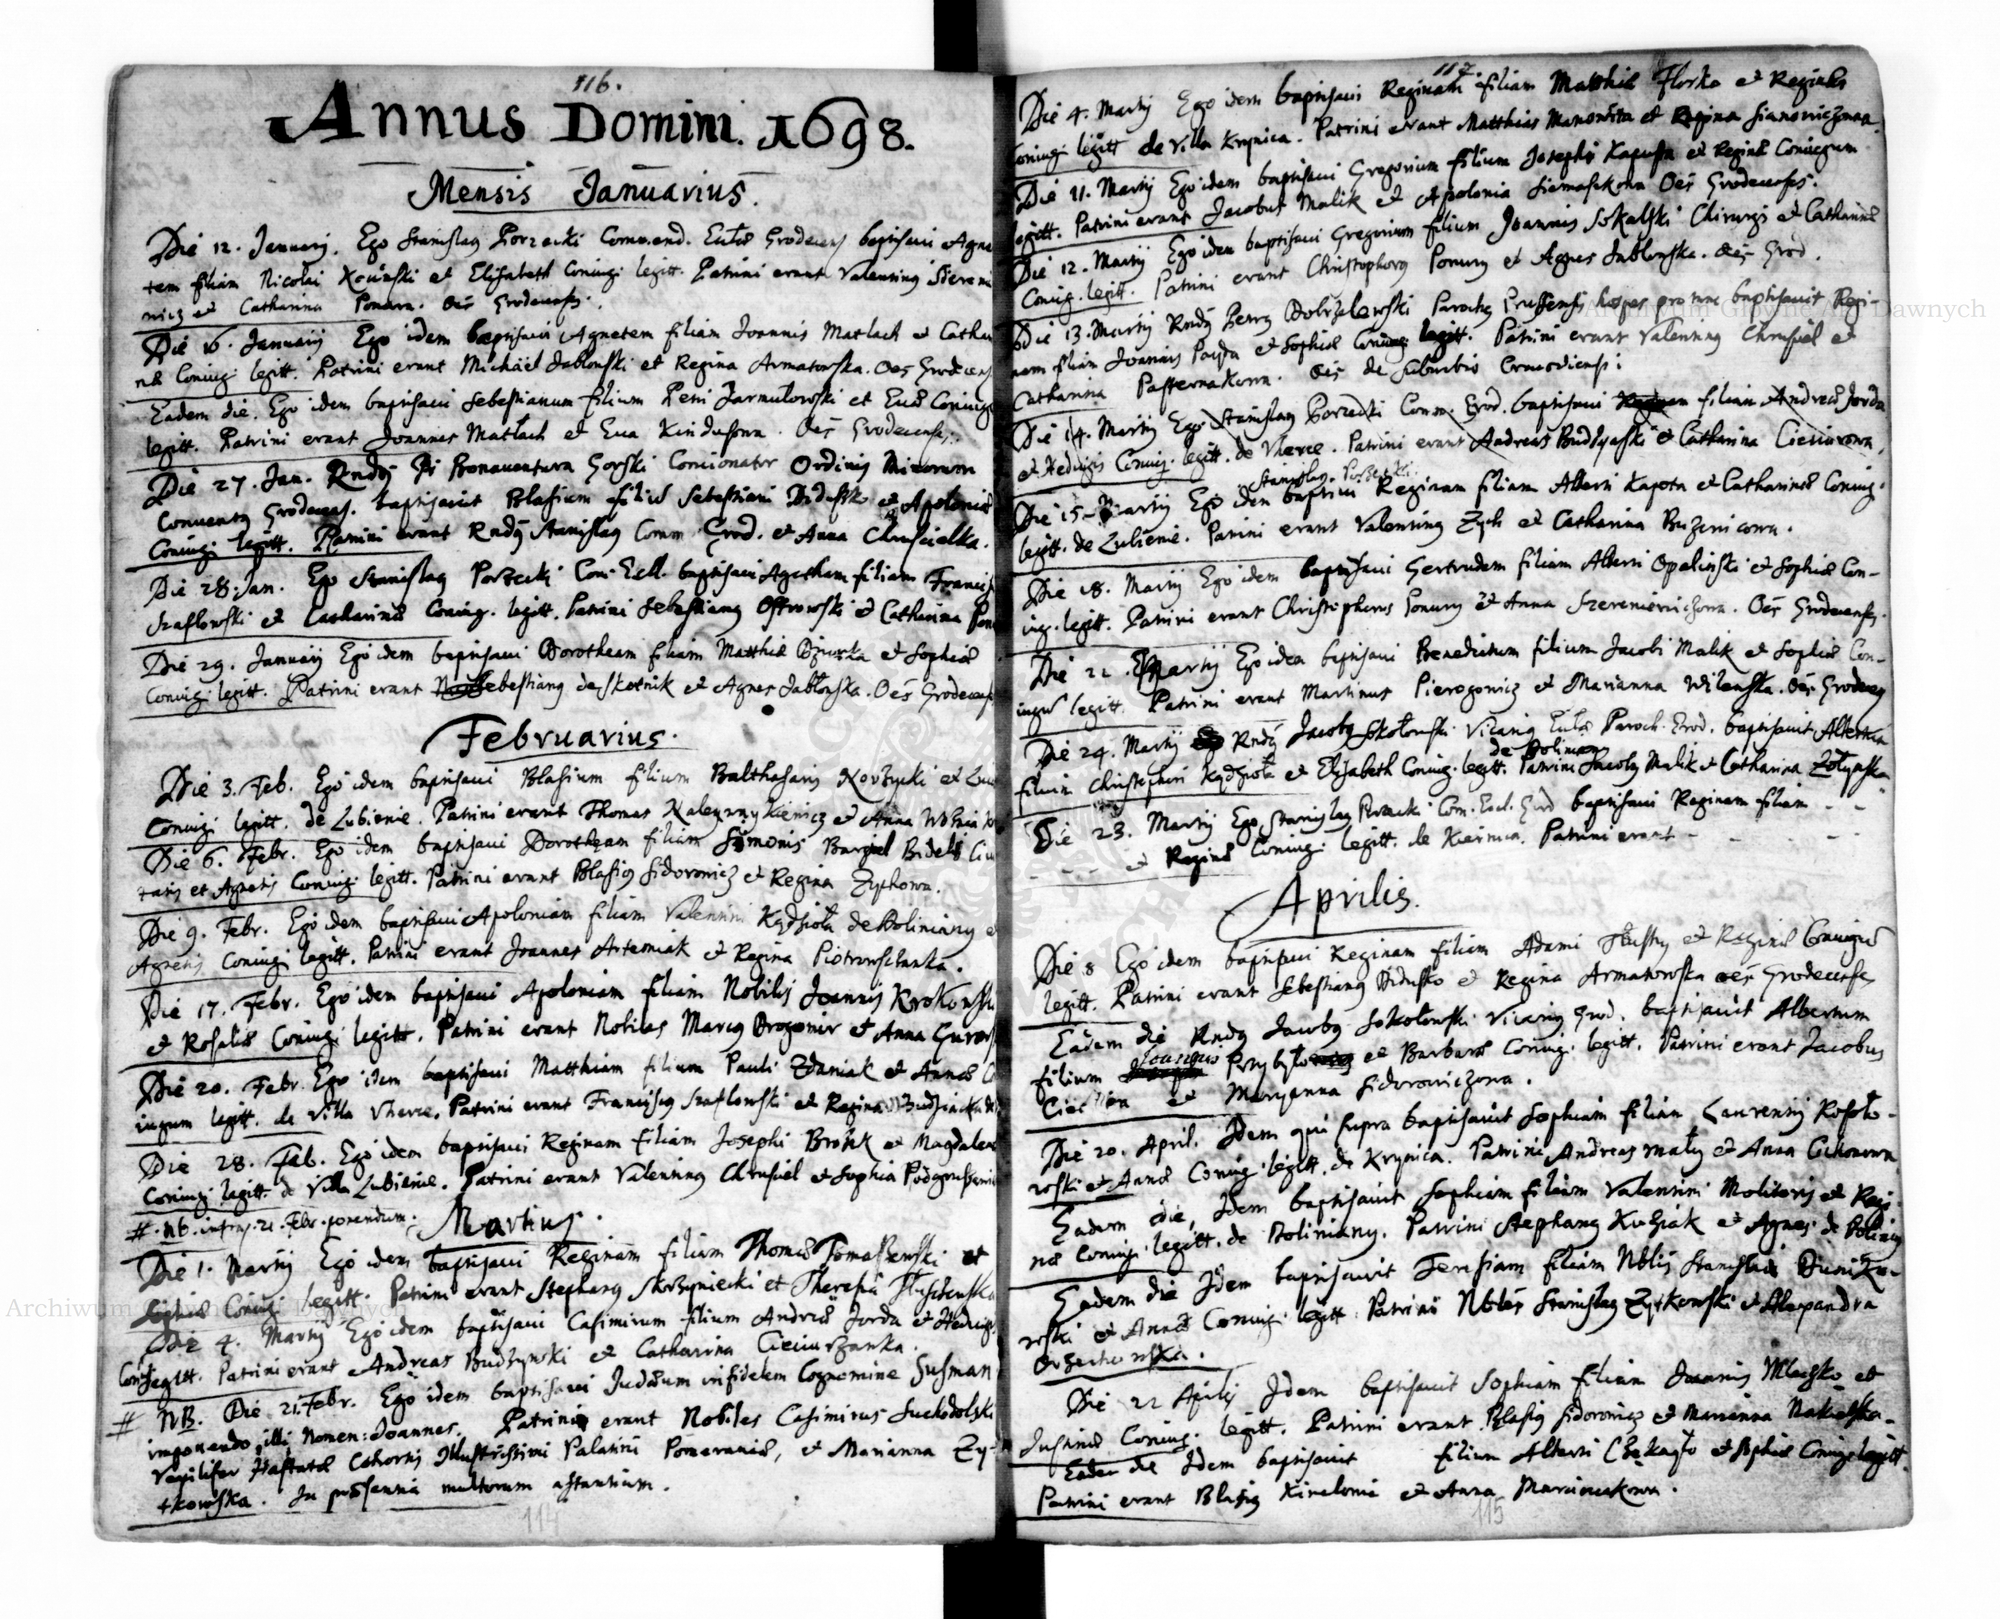 116.
Annus Domini. 1698.
Mensis Januarius.
Die 12. Januarij. Ego Stanislaus Porzecki Commend. Grodecen baptisavi Agne
tem filiam Nicolai et Elisabeth Coniugū legitt. Patrini erant Valentinus
nicz et Catharina Ponura. Oēs Grodecenses.
Die 16. Januarij Ego idem baptisavi Agnetem filiam Joannis Matlach et Catha
næ Coniugū legitt. Patrini erant Michäel Jablonski et Regina Armatowska. Oes Grodecens
Eadem die. Ego idem baptisavi Sebestianum filium Petri Jarmułowski et Evæ Coniugū
legitt. Patrini erant Joannes Matlach et Eva. Oēs Grodecenses.
Die 27. Jan. Rndus Pr Bonaventura Gorski Concionator Ordinis Minorum
Conventus Grodecens. baptisavit Blasium filiū Sebestiani Didusko et Apoloniæ
Coniugū legitt. Patrini erant Rndus Stanislaus Comm. Grod. et Anna Chruscielka.
Die 28. Jan. Ego Stanislaus Porzecki Com. Eccl. baptisavi Agatham filiam Francisc
Szaflowski et Catharinæ Coniug. legitt. Patrini Sebestianus Ostrowski et Catharina Pon
Die 29. Januarij Ego idem baptisavi Dorotheam filiam Matthiæ et Sophiæ
Coniugū legitt. Patrini erant Sebestianus de Skotnik et Agnes Jabłonska. Oēs Grodecens
Februarius.
Die 3. Feb. Ego idem baptisavi Blasium filium Balthasaris Korzycki et
Coniugū legitt. de Lubienie. Patrini erant Thomas et Anna
Die 6. Febr. Ego idem baptisavi Dorotheam filiam Simonis
et Agnetis Coniugū legitt. Patrini erant Blasius Sidorowicz et Regina Zychowa.
Die 9. Febr. Ego idem baptisavi Apoloniam filiam Valentini Kądzioła de Doliniany e
Agnetis Coniugū legitt. Patrini erant Joannes Artemiak et Regina
Die 17. Febr. Ego idem baptisavi Apoloniam filiam Nobilis Joannis Krokowski
et Rosaliæ Coniugū legitt. Patrini erant Nobiles Marcus Drogomir et Anna
Die 20. Febr. Ego idem baptisavi Matthiam filium Pauli Zdaniak et Annæ Co
iugum legitt. de Villa Vherce. Patrini erant Franciscus Szaflowski et Regina
Die 28. Feb. Ego idem baptisavi Reginam filiam Josephi et Magdalenæ
Coniugū legitt. de Villa Lubienie. Patrini erant Valentinus Chrusciel et Sophia
#. NB. infra 21. Febr. ponendum.
Martius.
Die 1. Martij Ego idem baptisavi Reginam filiam Thomæ Tomaszewski et
Coniugū legitt. Patrini erant Stephanus Skrzyniecki et Theresia
Die 4. Martij Ego idem baptisavi Casimirum filium Andreæ Jorda et Hedvigis
Coniū legitt. Patrini erant Andreas Budzynski et Catharina Cieciurzanka.
# NB. Die 21. Febr. Ego idem baptisavi Judæum infidelem Cognomine Susman
imponendo illi Nomen: Joannes. Patrini erant Nobiles Casimirus Suchodolski
Vexilifer Hastatæ Cohortis Illustrissimi Palatini Pomeraniæ, et Marianna Zy-
tkowska. In præsentia multorum astantium.
114
117.
Die 4. Martij Ego idem baptisavi Reginam filiam Matthiæ Florka et Reginæ
Coniugū legitt de Villa Krynica. Patrini erant Matthias et Regina
Die 11. Martij Ego idem baptisavi Gregorium filium Josephi Kapusta et Reginæ Coniugum
legitt. Patrini erant Jacobus Malik et Apolonia Siemaszkowa Oēs Grodecenses.
Die 12. Martij Ego idem baptisavi Gregorium filium Joannis Sokalski Chirurgi et Catharinæ
Coniug. legitt. Patrini erant Christophorus Ponury et Agnes Jablonska. Oēs Grod.
Die 13. Martij Rndus Petrus Dobrzelewski Parochus hospes pro tunc baptisavit Regi-
nam filiam Joannis et Sophiæ Coniugū legitt. Patrini erant Valentinus Chrusciel et
Catharina Pasternakowa. Oēs de Suburbio
Die 14. Martij Ego Stanislaus Porzecki Comm. Grod. baptisavi filiam Andreæ Jorda
et Hedvigis Coniug. legitt. de Vherce. Patrini erant Andreas Budzynski et Catharina Cieciurowa.
Stanislaus Porzecki
Die 15. Martij Ego idem baptisavi Reginam filiam Alberti Kapota et Catharinæ Coniug.
legitt. de Lubienie. Patrini erant Valentinus Zych et Catharina
Die 18. Martij Ego idem baptisavi Gertrudem filiam Alberti Opalinski et Sophiæ Con-
iug. legitt. Patrini erant Christophorus Ponury et Anna Szeremowiczowa. Oēs Grodecenses.
Die 21. Martij Ego idem baptisavi Benedictum filium Jacobi Malik et Sophiæ Con-
iugū legitt. Patrini erant Martinus Pierogowicz et Marianna Wilenska. Oēs Grodecens
Die 24. Martij Rndus Jacobus Sokołowski Vicarius Paroch. Grod. baptisavit Albertum
de Doliniany
filium Christophori Kądzioła et Elisabeth Coniug. legitt. Patrini Jacobus Malik et Catharina
Die 23. Martij Ego Stanislaus Porzecki Com. Eccl. Grod baptisavi Reginam filiam - -
- - - et Reginæ Coniugū legitt. de Kiernica. Patrini erant - - -
Aprilis.
Die 8 Ego idem baptisavi Reginam filiam Adami et Reginæ Coniugū
legitt. Patrini erant Sebestianus Didusko et Regina Armatowska oēs Grodecenses
Eadem die Rndus Jacobus Sokołowski Vicarius Grod. baptisavit Albertum
filium Przybyło et Barbaræ Coniugū legitt. Patrini erant Jacobus
et Maryanna Sidorowiczowa.
Die 20. April. Idem qui supra baptisavit Sophiam filiam Laurentij
et Annæ Coniug. legitt. de Krynica. Patrini Andreas Mały et Anna Cichonowa
Eadem die, Idem baptisavit Sophiam filiam Valentini Molitoris et Regi-
næ Coniug. legitt. de Doliniany. Patrini Stephanus Kuziak et Agnes de Doliniany
Eadem die Idem baptisavit Teresiam filiam Nblis Stanislai
wski et Annæ Coniugū legitt Patrini Nbles Stanislaus Zytkowski et Alexandra
Orzechowska.
Die 22 Aprilis Idem baptisavit Sophiam filiam Joannis et
Justinæ Coniug. legitt. Patrini erant Blasius Sidorowicz et Marianna
Eadem die Idem baptisavit filium Alberti et Sophiæ Coniugū legitt.
Patrini erant Blasius et Anna Marciniakowa.
115
Archiwum Główne Akt Dawnych
Archiwum Główne Akt Dawnych